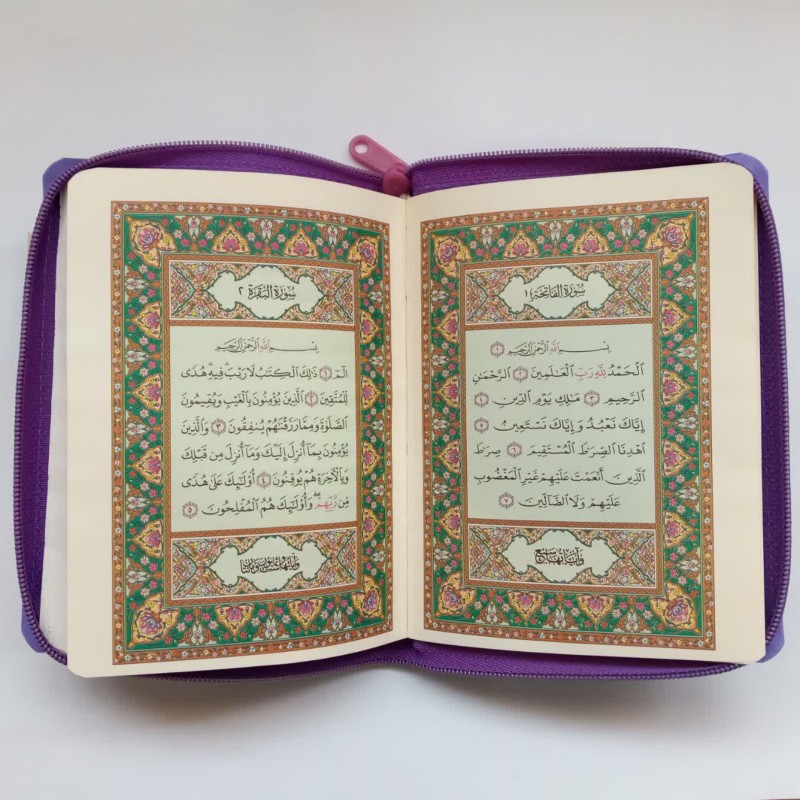 سورة الفاتحة ١
بِسْمِ اللَّهِ الرَّحْمَٰنِ الرَّحِيمِ ١
الْحَمْدُ لِلَّهِ رَبِّ الْعَالَمِينَ ٢ الرَّحْمَٰنِ
الرَّحِيمِ ٣ مَالِكِ يَوْمِ الدِّينِ ٤
إِيَّاكَ نَعْبُدُ وَإِيَّاكَ نَسْتَعِينُ ٥
اهْدِنَا الصِّرَاطَ الْمُسْتَقِيمَ ٦ صِرَاطَ
الَّذِينَ أَنْعَمْتَ عَلَيْهِمْ غَيْرِ الْمَغْضُوبِ
عَلَيْهِمْ وَلَا الضَّالِّينَ ٧
وآياتها سبع
سورة البقرة ٢
بِسْمِ اللَّهِ الرَّحْمَٰنِ الرَّحِيمِ
الٓمٓ ١ ذَٰلِكَ الْكِتَابُ لَا رَيْبَ ۛ فِيهِ ۛ هُدًى
لِلْمُتَّقِينَ ٢ الَّذِينَ يُؤْمِنُونَ بِالْغَيْبِ وَيُقِيمُونَ
الصَّلَاةَ وَمِمَّا رَزَقْنَاهُمْ يُنْفِقُونَ ٣ وَالَّذِينَ
يُؤْمِنُونَ بِمَا أُنْزِلَ إِلَيْكَ وَمَا أُنْزِلَ مِنْ قَبْلِكَ
وَبِالْآخِرَةِ هُمْ يُوقِنُونَ ٤ أُولَٰئِكَ عَلَىٰ هُدًى
مِنْ رَبِّهِمْ ۖ وَأُولَٰئِكَ هُمُ الْمُفْلِحُونَ ٥
وآياتها ست وثمانون ومائتان